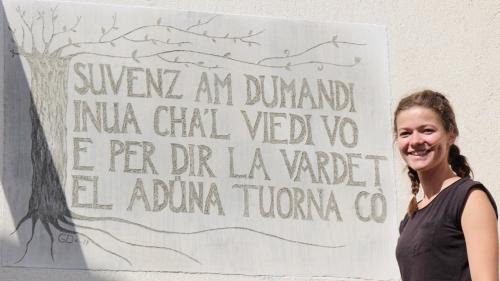 SUVENZ AM DUMANDI
INUA CHA'L VIEDI VO
E PER DIR LA VARDET
EL ADÜNA TUORNA CÒ